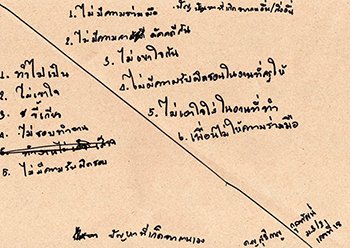 1. ไม่มีความร่วมมือ
2. ไม่มีความสามัคคี
3. ไม่เข้าใจกัน
4. ไม่มีความรับผิดชอบในงานที่ครูให้
5. ไม่เอาใจใส่ในงานที่ทำ
6. เพื่อนไม่ให้ความร่วมมือ
1. ทำไม่เป็น
2. ไม่เข้าใจ
3. ขี้เกียจ
4. ไม่ชอบทำงาน
5. ไม่มีความรับผิดชอบ
ปัญหาที่เกิดจากตนเอง